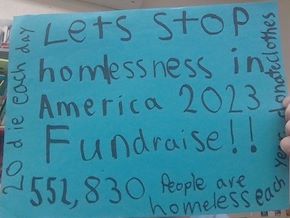 Lets stop
homlessness in
America 2023
Fundraise!!
552,830 People are
homeless each year
donate clothes
20 die each day